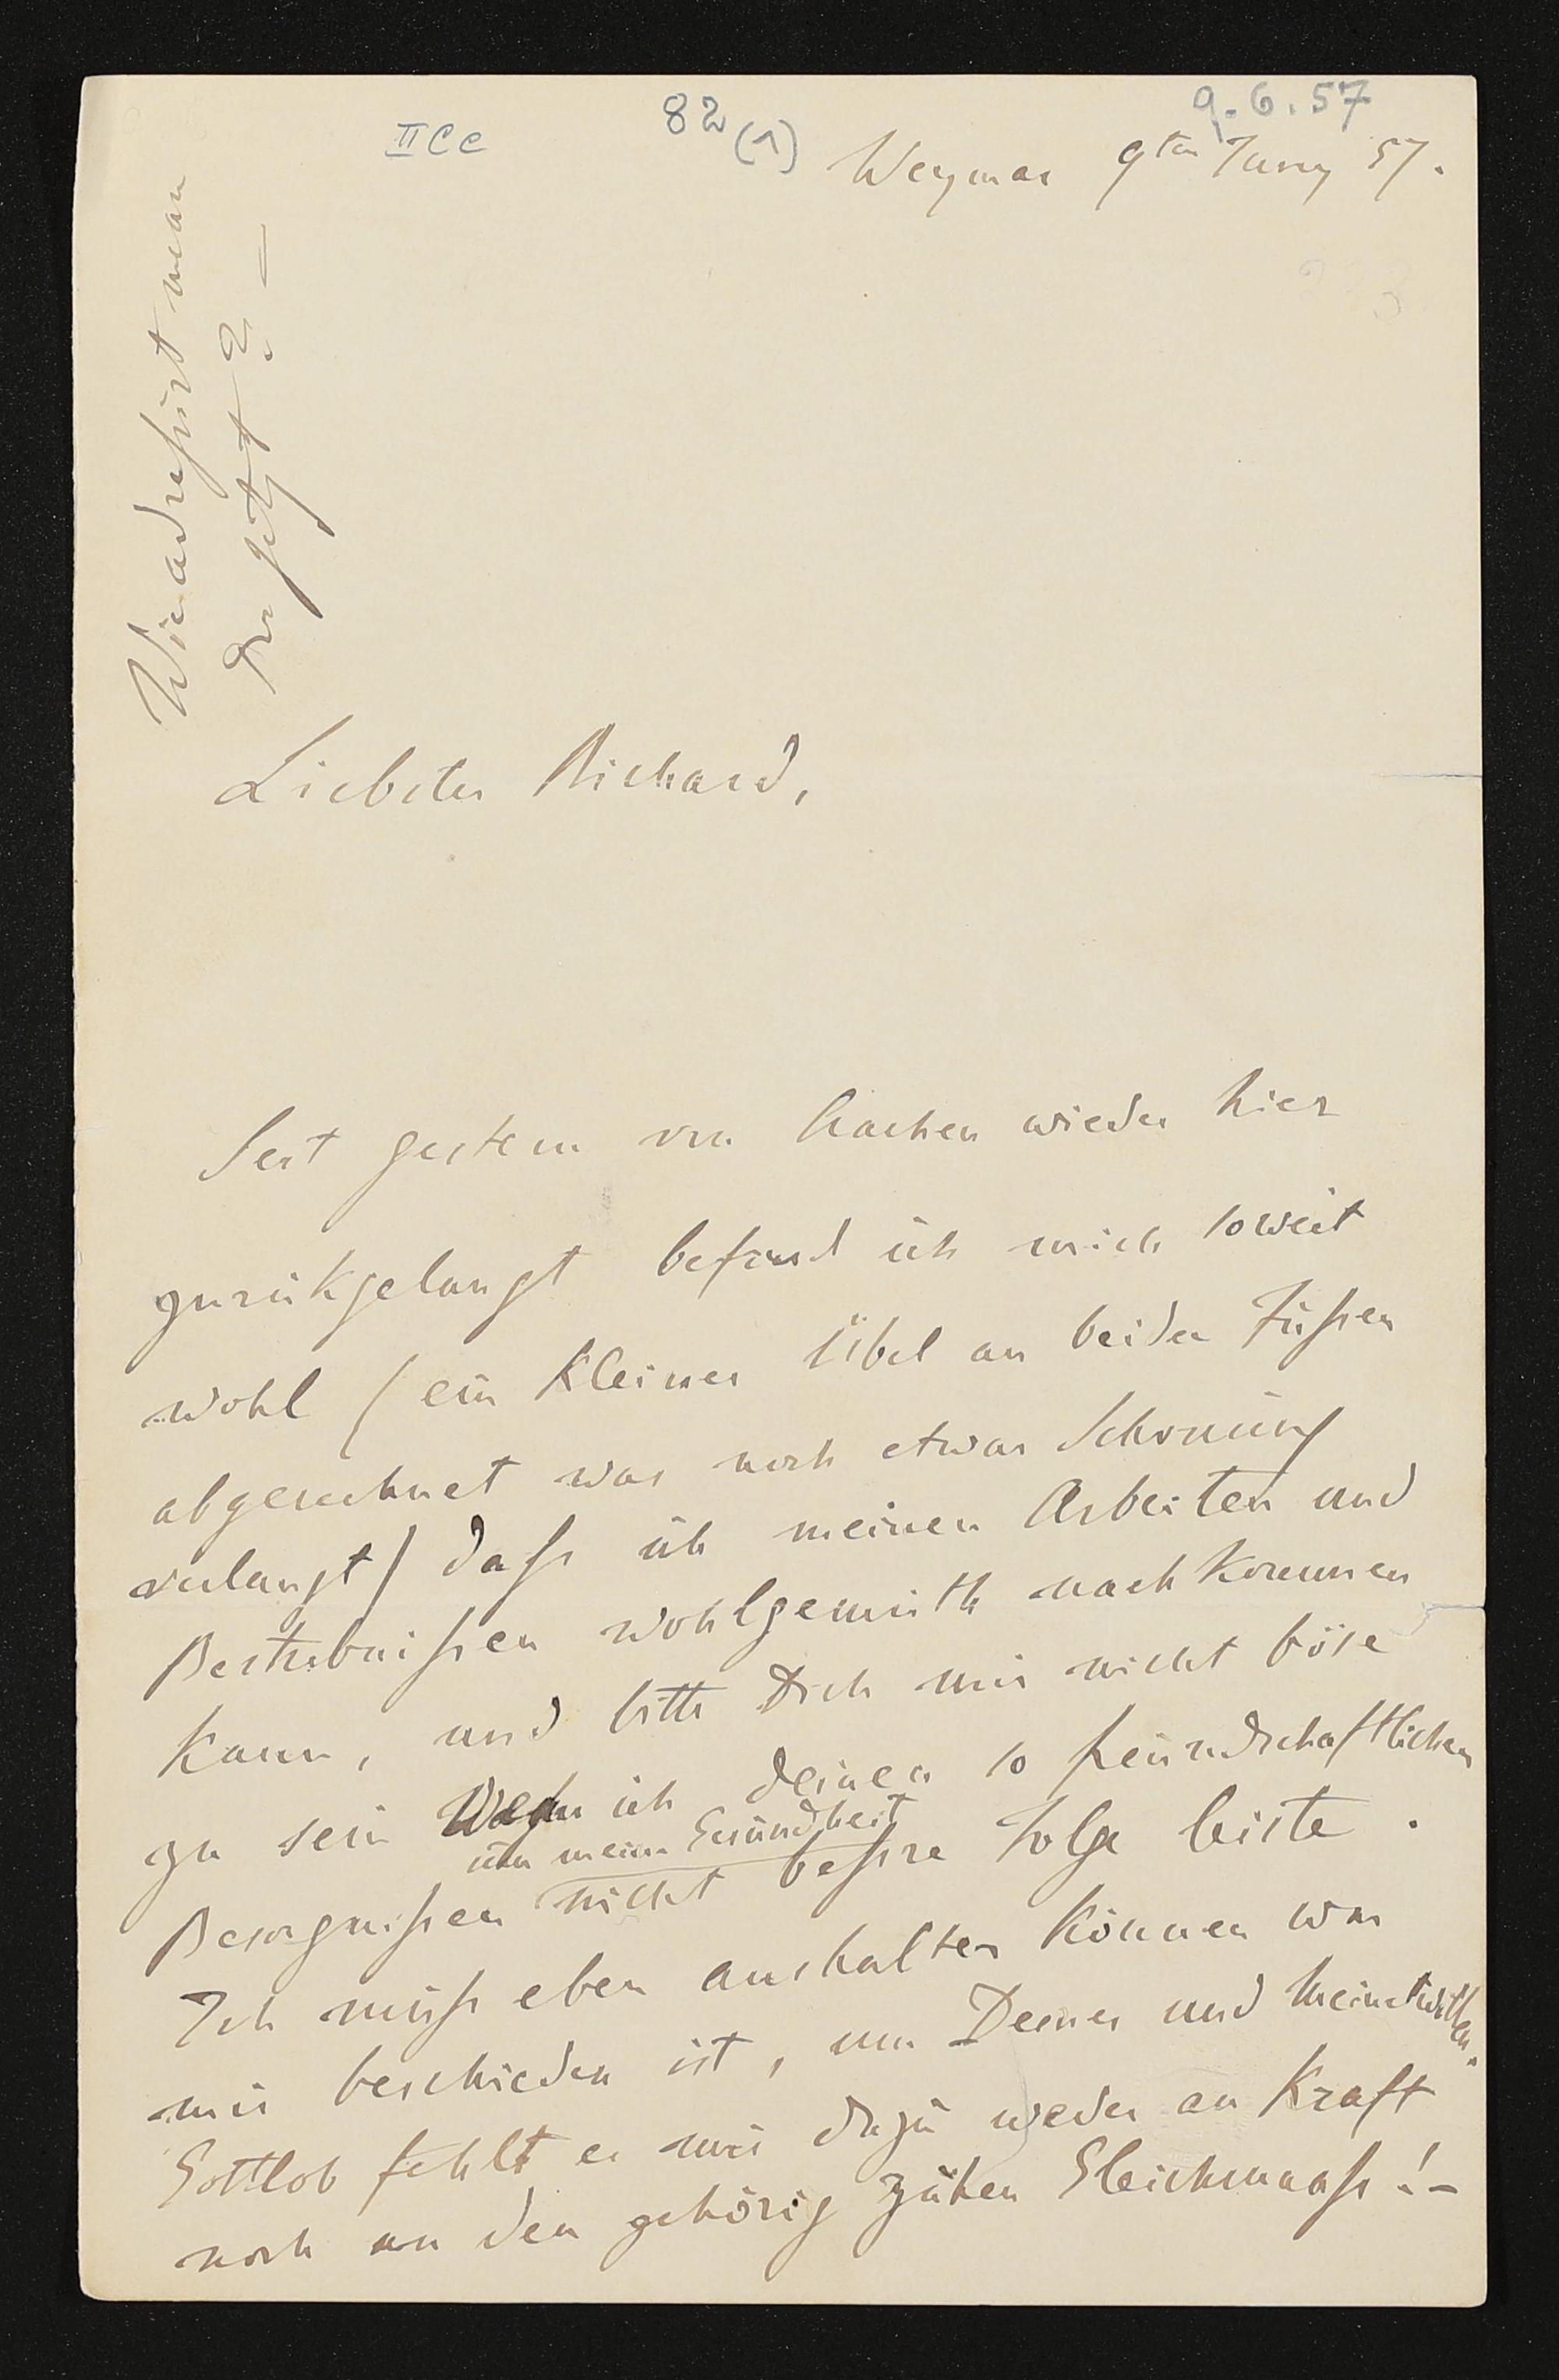 II C e
82 (1)
9.6.57
Weymar 9ten Juny 57.
Wie adressirt man
Dir jetzt? —
Liebster Richard,
Seit gestern von Aachen wieder hier
zurükgelangt befind ich mich soweit
wohl (ein kleines Übel an beiden Füßen
abgerechnet was noch etwas Schonung
verlangt) daß ich meinen Arbeiten und
Bestrebnißen wohlgemuth nachkommen
kann, und bitte Dich mir nicht böse
zu sein wenn ich deinen so freundschaftlichen
um meine Gesundheit
Besorgnißen nicht beßre Folge leiste.
Ich muß eben aushalten können was
mir beschieden ist, um Deiner und meinetwillen.
Gottlob fehlt es mir dazu weder an Kraft
noch an den gehörig zähen Gleichmaaß! –